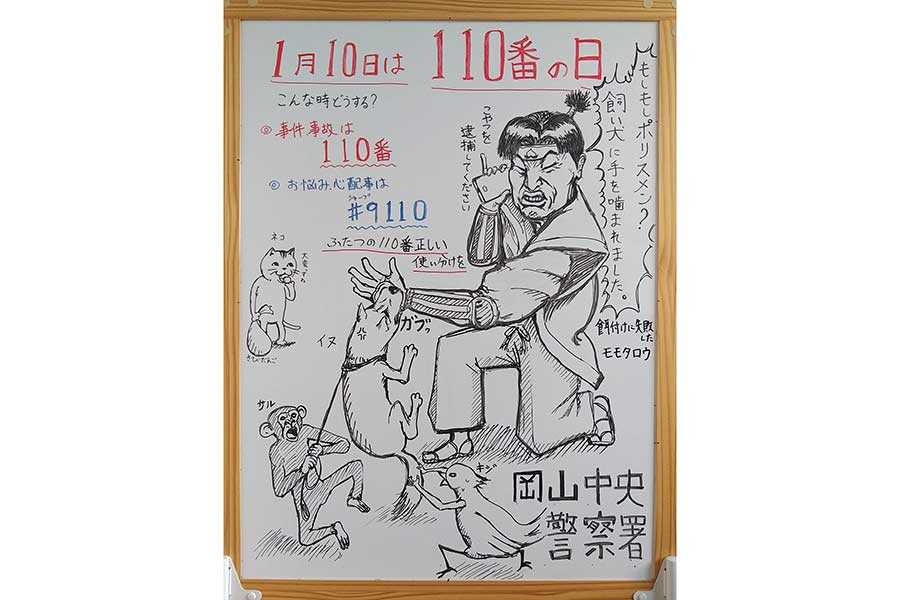 1月10日は 110番の日
こんな時どうする?
◎事件事故は
110番
◎お悩み、心配事は
シャープ
#9110
ふたつの110番正しい
使い分けを
もしもしポリスメン?
飼い犬に手を噛まれました。
こやつを
逮捕してください
餌付けに失敗した
モモタロウ
ネコ
大変ですね
きびだんご
イヌ
ガブッ
サル
キジ
岡山中央
警察署